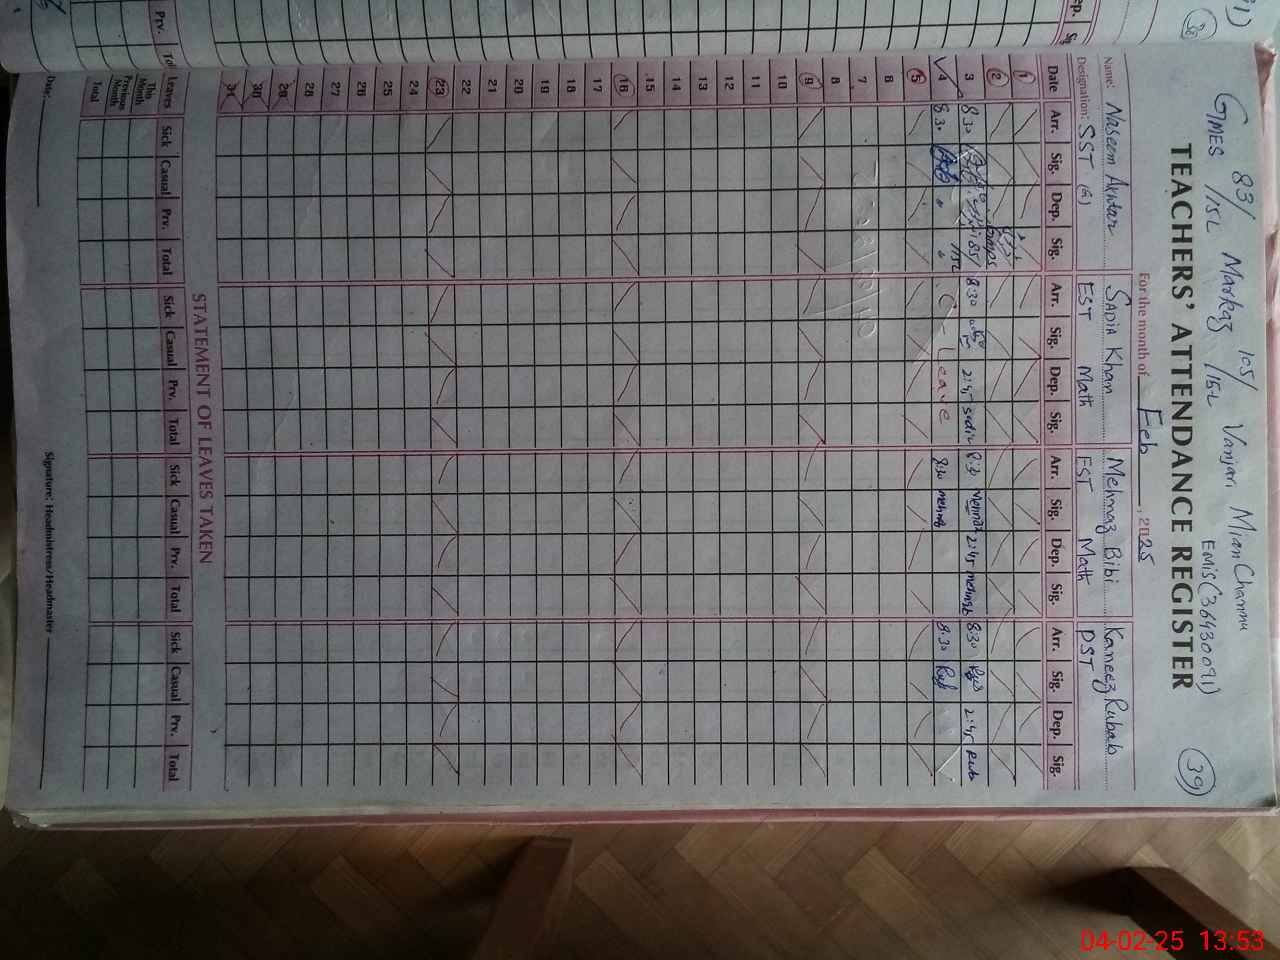 GMES 83/15L Markaz 105/15L Vanjari Mian Channu
EMIS(36430091)
39
TEACHERS' ATTENDANCE REGISTER
For the month of Feb, 2025
Name: Naseem Akhtar Sadia Khan Mehnaz Bibi Kaneez Rubab
Designation: SST EST Math EST Math PST
Date Arr. Sig. Dep. Sig. Arr. Sig. Dep. Sig. Arr. Sig. Dep. Sig. Arr. Sig. Dep. Sig.
1
2
3 8:30 8:30 2:45 Sadia 8:30 Mehnaz 2:45 Mehnaz 8:30 Rub 2:45 Rub
4 8:30 C-Leave 8:30 Mehnaz 8:30 Rub
5
6
7
8
9
10
11
12
13
14
15
16
17
18
19
20
21
22
23
24
25
26
27
28
29
30
31
STATEMENT OF LEAVES TAKEN
Leaves Sick Casual Prv. Total Sick Casual Prv. Total Sick Casual Prv. Total Sick Casual Prv. Total
This Month
Previous Month
Total
Date:
Signature: Headmistress/Headmaster
04-02-25 13:53